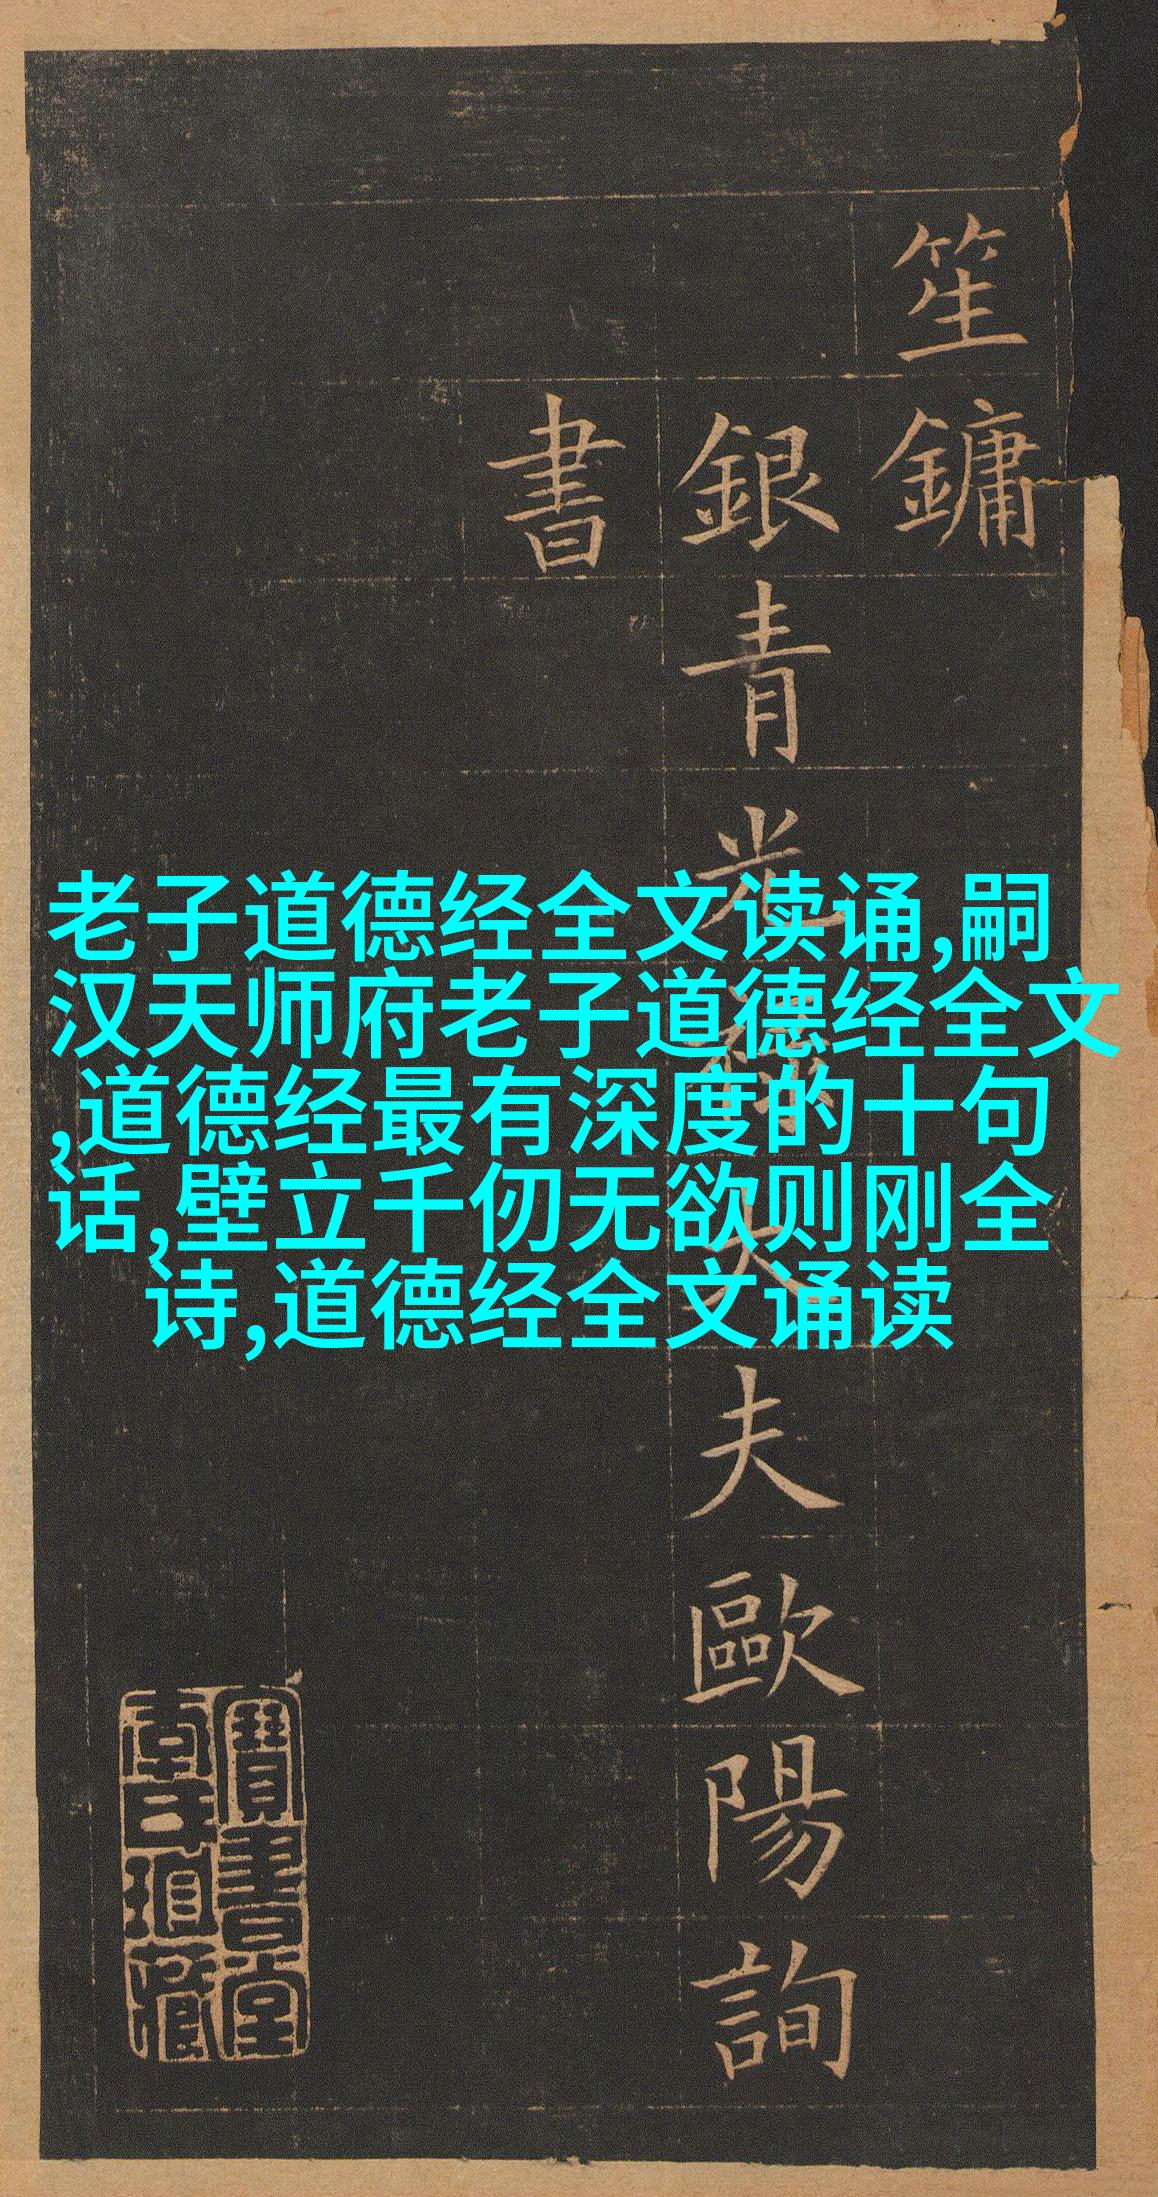 笙鏞
銀青光祿大夫歐陽詢
書
老子道德经全文读诵,嗣
汉天师府老子道德经全文
,道德经最有深度的十句
话,壁立千仞无欲则刚全
诗,道德经全文诵读
寶書堂